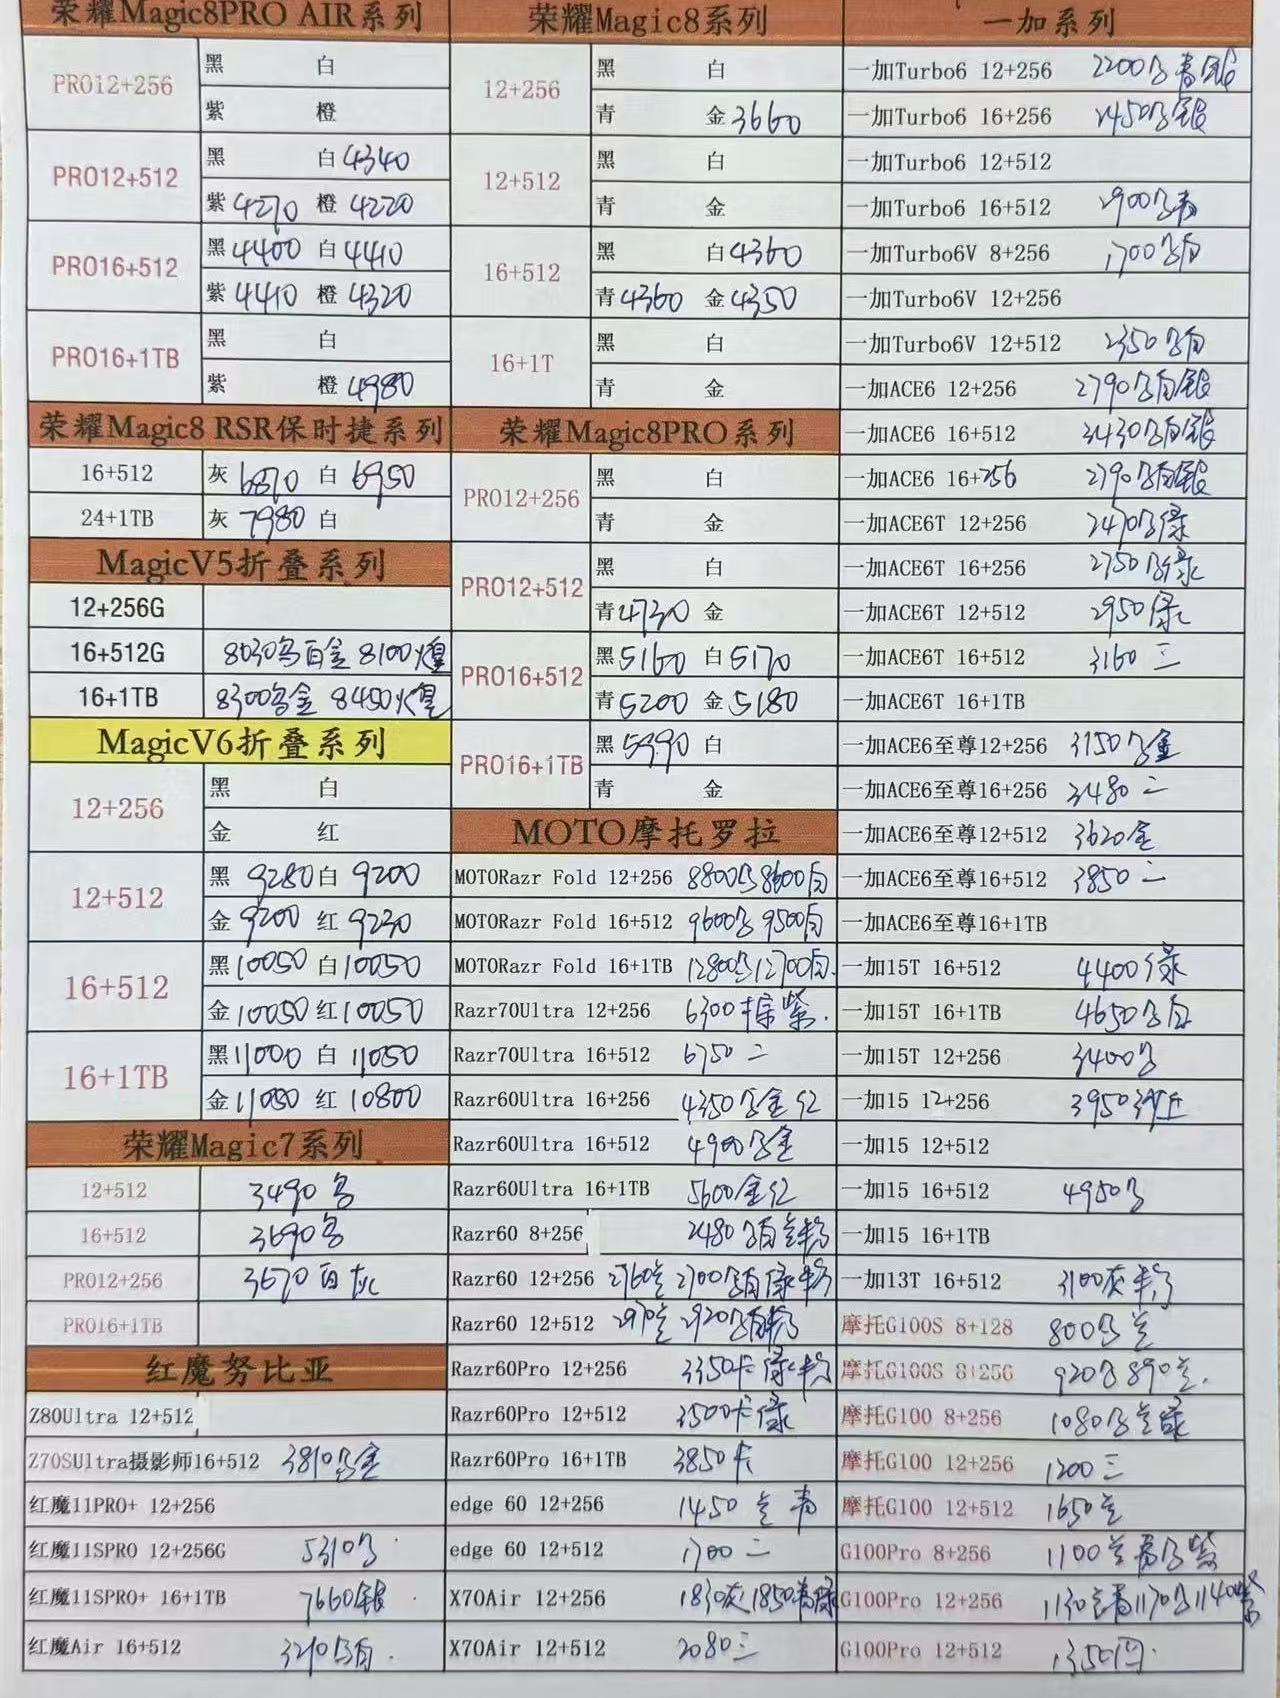 荣耀Magic8PRO AIR系列
PRO12+256
黑 白
紫 橙
PRO12+512
黑 白4340
紫4270 橙4220
PRO16+512
黑4400 白4410
紫4410 橙4320
PRO16+1TB
黑 白
紫 橙4980
荣耀Magic8 RSR保时捷系列
16+512 灰6870 白6950
24+1TB 灰7980 白
MagicV5折叠系列
12+256G
16+512G 8030乌白金 8100煌
16+1TB 8300乌金 8450煌
MagicV6折叠系列
12+256
黑 白
金 红
12+512
黑9280 白9200
金9200 红9230
16+512
黑10050 白10050
金10050 红10050
16+1TB
黑11000 白11050
金11050 红10800
荣耀Magic7系列
12+512 3490
16+512 3690
PRO12+256 3670白灰
PRO16+1TB
红魔努比亚
Z80Ultra 12+512
Z70SUltra摄影师16+512 3810乌金
红魔11PRO+ 12+256
红魔11SPRO 12+256G 5310乌
红魔11SPRO+ 16+1TB 7660银
红魔Air 16+512 3210乌白
荣耀Magic8系列
12+256
黑 白
青 金3660
12+512
黑 白
青 金
16+512
黑 白4360
青4360 金4350
16+1T
黑 白
青 金
荣耀Magic8PRO系列
PRO12+256
黑 白
青 金
PRO12+512
黑 白
青4730 金
PRO16+512
黑5160 白5170
青5200 金5180
PRO16+1TB
黑5990 白
青 金
MOTO摩托罗拉
MOTORazr Fold 12+256 8800乌8600白
MOTORazr Fold 16+512 9600乌 9500白
MOTORazr Fold 16+1TB 12800乌12700白
Razr70Ultra 12+256 6300棕紫
Razr70Ultra 16+512 6750二
Razr60Ultra 16+256 4350乌金红
Razr60Ultra 16+512 4900乌金
Razr60Ultra 16+1TB 5600金红
Razr60 8+256 2480乌白兰粉
Razr60 12+256 2760兰 2700乌白绿粉
Razr60 12+512 2970兰 2920乌白粉
Razr60Pro 12+256 3350卡绿粉
Razr60Pro 12+512 3500卡绿
Razr60Pro 16+1TB 3850卡
edge 60 12+256 1450兰青
edge 60 12+512 1700二
X70Air 12+256 1830灰1850青绿
X70Air 12+512 2080三
一加系列
一加Turbo6 12+256 2200乌青银
一加Turbo6 16+256 2450乌银
一加Turbo6 12+512
一加Turbo6 16+512 2900乌青
一加Turbo6V 8+256 1700乌白
一加Turbo6V 12+256
一加Turbo6V 12+512 2350乌白
一加ACE6 12+256 2790乌白银
一加ACE6 16+512 3430乌白银
一加ACE6 16+256 2790乌白银
一加ACE6T 12+256 2470乌绿
一加ACE6T 16+256 2750乌绿
一加ACE6T 12+512 2950绿
一加ACE6T 16+512 3160三
一加ACE6T 16+1TB
一加ACE6至尊12+256 3150乌金
一加ACE6至尊16+256 3480二
一加ACE6至尊12+512 3620金
一加ACE6至尊16+512 3850二
一加ACE6至尊16+1TB
一加15T 16+512 4400绿
一加15T 16+1TB 4650乌白
一加15T 12+256 3400乌
一加15 12+256 3950沙丘
一加15 12+512
一加15 16+512 4950乌
一加15 16+1TB
一加13T 16+512 3100灰粉
摩托G100S 8+128 800乌兰
摩托G100S 8+256 920乌890兰
摩托G100 8+256 1080乌兰绿
摩托G100 12+256 1200三
摩托G100 12+512 1650兰
G100Pro 8+256 1100兰青乌紫
G100Pro 12+256 1130兰青1170乌1140紫
G100Pro 12+512 1350